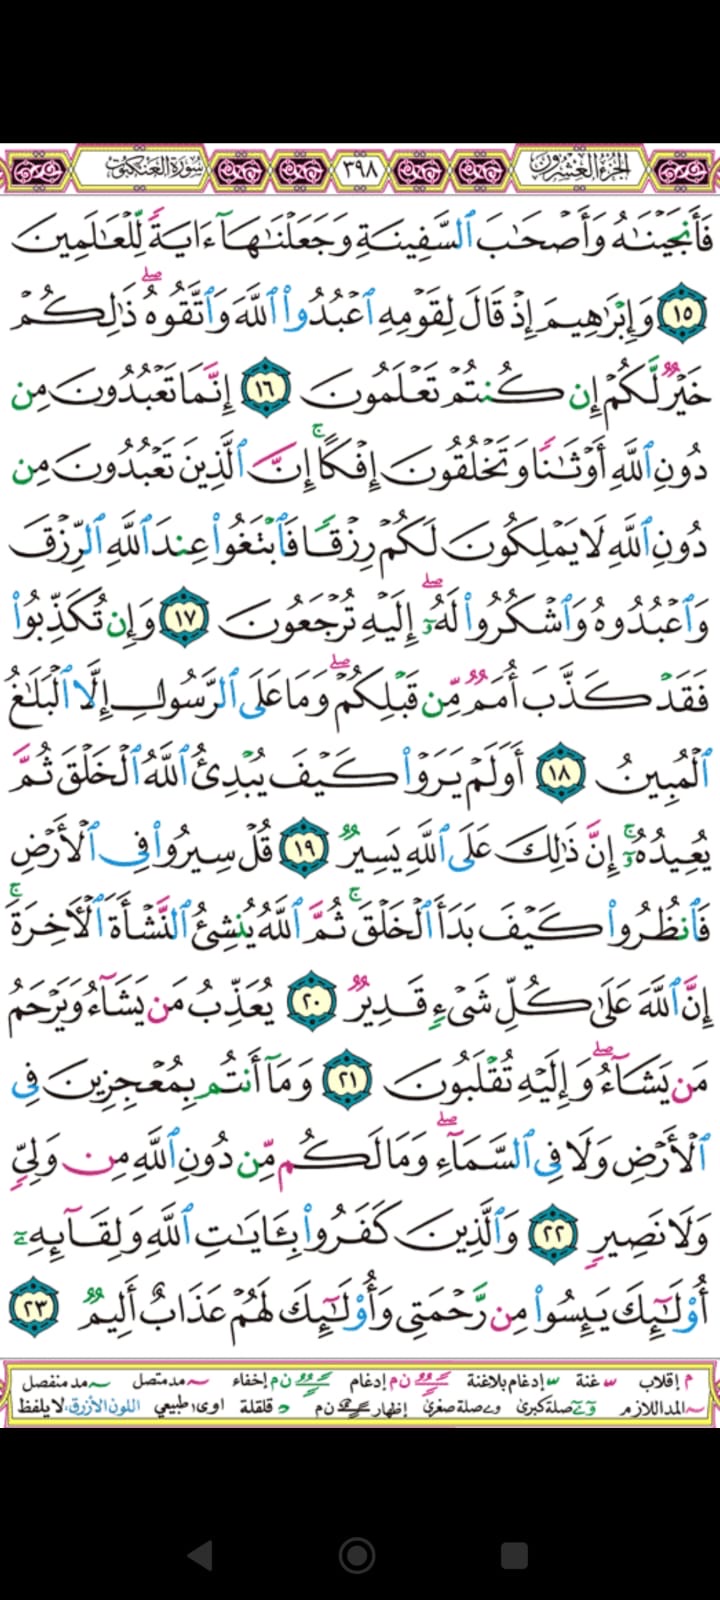 الجزء العشرون
٣٩٨
سورة العنكبوت
فَأَنجَيْنَٰهُ وَأَصْحَٰبَ ٱلسَّفِينَةِ وَجَعَلْنَٰهَآ ءَايَةً لِّلْعَٰلَمِينَ
١٥ وَإِبْرَٰهِيمَ إِذْ قَالَ لِقَوْمِهِ ٱعْبُدُوا۟ ٱللَّهَ وَٱتَّقُوهُ ۖ ذَٰلِكُمْ
خَيْرٌ لَّكُمْ إِن كُنتُمْ تَعْلَمُونَ ١٦ إِنَّمَا تَعْبُدُونَ مِن
دُونِ ٱللَّهِ أَوْثَٰنًا وَتَخْلُقُونَ إِفْكًا ۚ إِنَّ ٱلَّذِينَ تَعْبُدُونَ مِن
دُونِ ٱللَّهِ لَا يَمْلِكُونَ لَكُمْ رِزْقًا فَٱبْتَغُوا۟ عِندَ ٱللَّهِ ٱلرِّزْقَ
وَٱعْبُدُوهُ وَٱشْكُرُوا۟ لَهُۥٓ ۖ إِلَيْهِ تُرْجَعُونَ ١٧ وَإِن تُكَذِّبُوا۟
فَقَدْ كَذَّبَ أُمَمٌ مِّن قَبْلِكُمْ ۖ وَمَا عَلَى ٱلرَّسُولِ إِلَّا ٱلْبَلَٰغُ
ٱلْمُبِينُ ١٨ أَوَلَمْ يَرَوْا۟ كَيْفَ يُبْدِئُ ٱللَّهُ ٱلْخَلْقَ ثُمَّ
يُعِيدُهُۥٓ ۚ إِنَّ ذَٰلِكَ عَلَى ٱللَّهِ يَسِيرٌ ١٩ قُلْ سِيرُوا۟ فِى ٱلْأَرْضِ
فَٱنظُرُوا۟ كَيْفَ بَدَأَ ٱلْخَلْقَ ۚ ثُمَّ ٱللَّهُ يُنشِئُ ٱلنَّشْأَةَ ٱلْأَخِرَةَ ۚ
إِنَّ ٱللَّهَ عَلَىٰ كُلِّ شَىْءٍ قَدِيرٌ ٢٠ يُعَذِّبُ مَن يَشَآءُ وَيَرْحَمُ
مَن يَشَآءُ ۖ وَإِلَيْهِ تُقْلَبُونَ ٢١ وَمَآ أَنتُم بِمُعْجِزِينَ فِى
ٱلْأَرْضِ وَلَا فِى ٱلسَّمَآءِ ۖ وَمَا لَكُم مِّن دُونِ ٱللَّهِ مِن وَلِىٍّ
وَلَا نَصِيرٍ ٢٢ وَٱلَّذِينَ كَفَرُوا۟ بِـَٔايَٰتِ ٱللَّهِ وَلِقَآئِهِۦٓ
أُو۟لَٰٓئِكَ يَئِسُوا۟ مِن رَّحْمَتِى وَأُو۟لَٰٓئِكَ لَهُمْ عَذَابٌ أَلِيمٌ ٢٣
م إقلاب غنة إدغام بلاغنة ن م إدغام ن م إخفاء مد متصل مد منفصل
المد اللازم صلة كبرى صلة صغرى إظهار ن م قلقلة اوى طبيعي اللون الأزرق: لا يلفظ